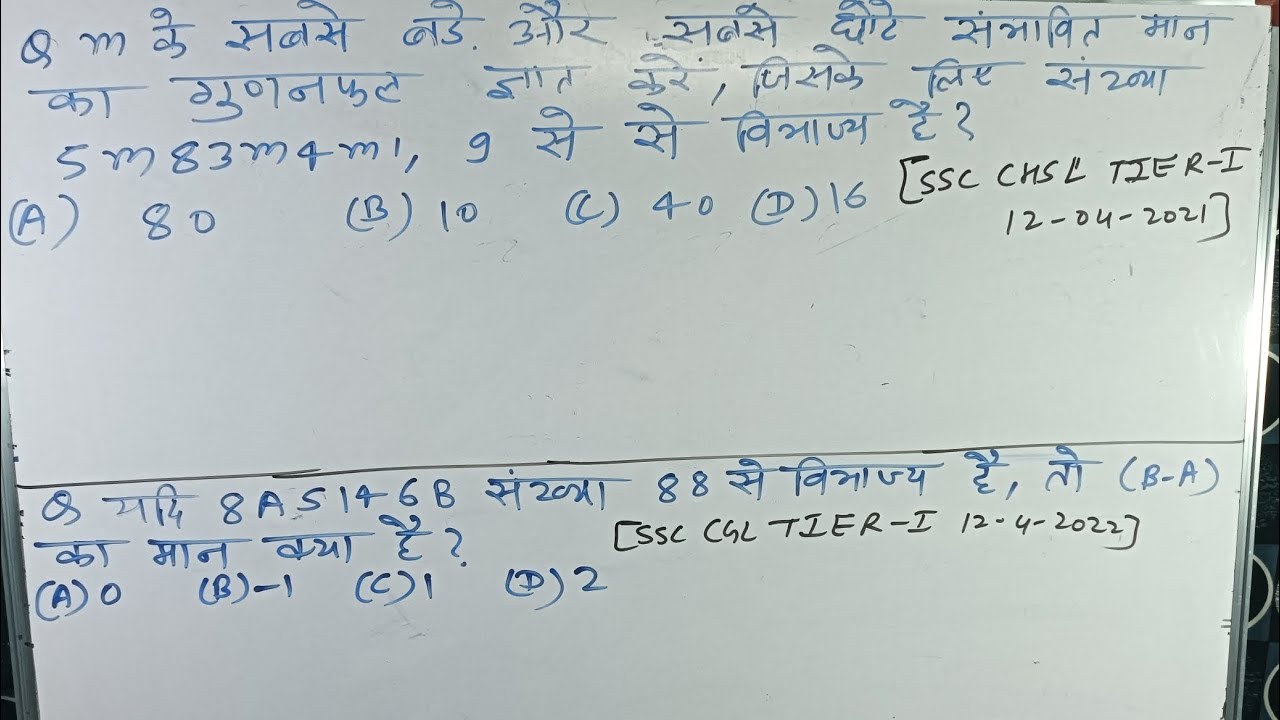 Q m के सबसे बडे. और सबसे छोटे संभावित मान
का गुणनफल ज्ञात करें, जिसके लिए संख्या
5m83m4m1, 9 से से विभाज्य है?
[SSC CHSL TIER-I
12-04-2021]
(A) 80 (B) 10 (C) 40 (D) 16
Q यदि 8A5146B संख्या 88 से विभाज्य है, तो (B-A)
का मान क्या है?
[SSC CGL TIER-I 12-4-2022]
(A) 0 (B) -1 (C) 1 (D) 2